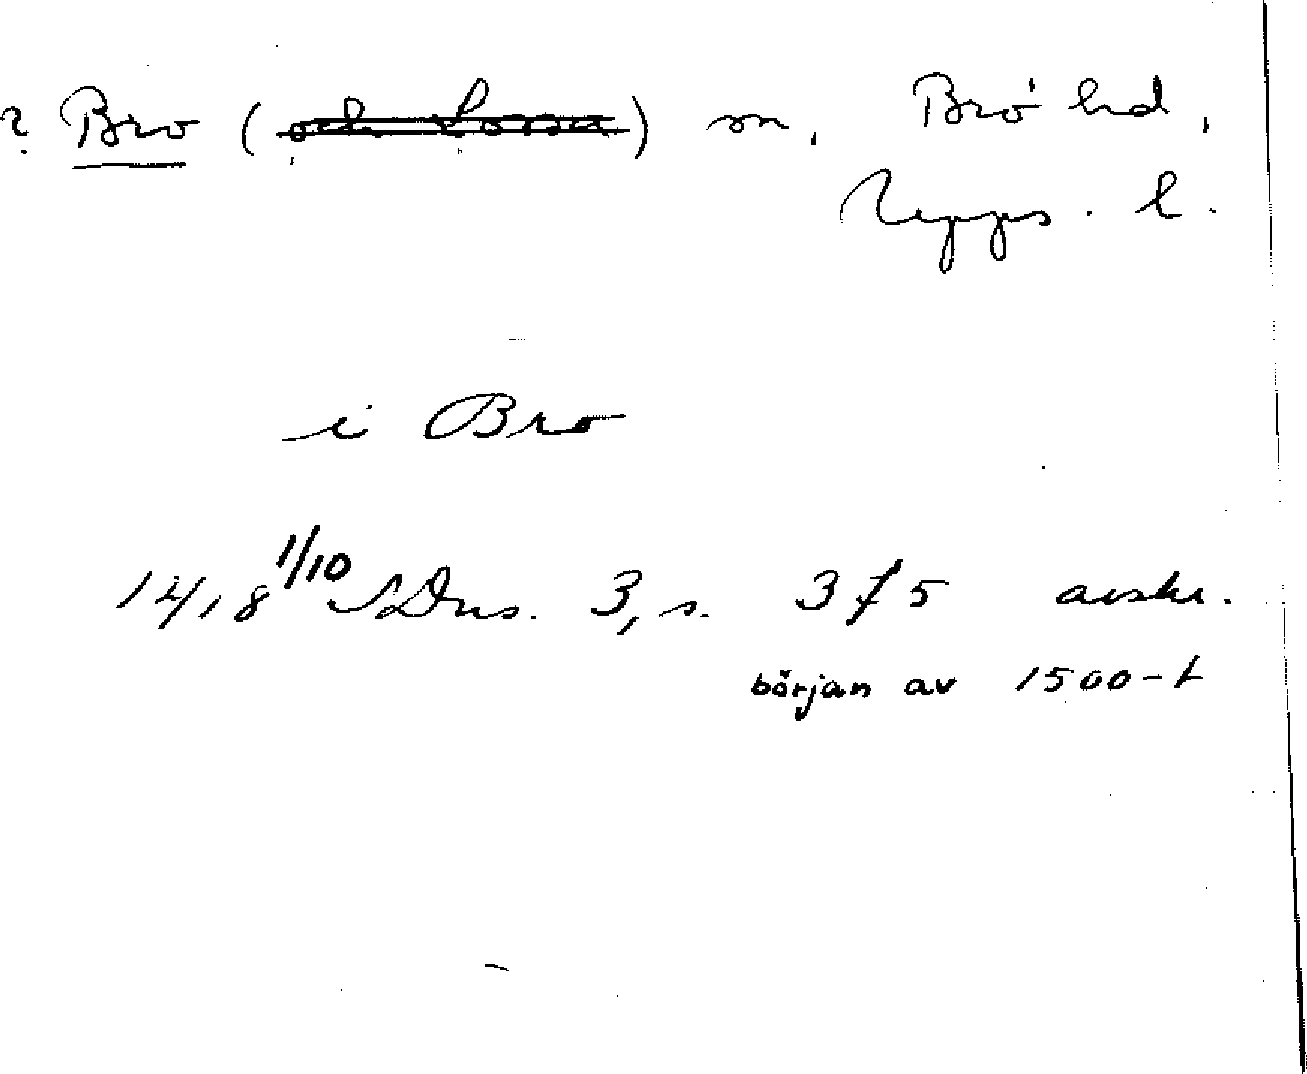 ? Bro (och Lossa) sn, Bro hd,
Upps. l.
i Bro
1418 1/10 SDns. 3, s. 375 avskr.
början av 1500-t